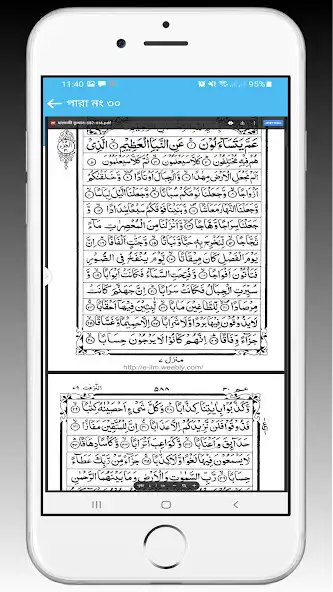 11:40 95%
← পারা নং ৩০
عَمَّ يَتَسَآءَلُوْنَ ۝ عَنِ النَّبَاِ الْعَظِيْمِ ۝ الَّذِىْ
هُمْ فِيْهِ مُخْتَلِفُوْنَ ۝ كَلَّا سَيَعْلَمُوْنَ ۝ ثُمَّ كَلَّا سَيَعْلَمُوْنَ ۝
اَلَمْ نَجْعَلِ الْاَرْضَ مِهٰدًا ۝ وَّالْجِبَالَ اَوْتَادًا ۝ وَّخَلَقْنٰكُمْ
اَزْوَاجًا ۝ وَّجَعَلْنَا نَوْمَكُمْ سُبَاتًا ۝ وَّجَعَلْنَا الَّيْلَ لِبَاسًا ۝
وَّجَعَلْنَا النَّهَارَ مَعَاشًا ۝ وَّبَنَيْنَا فَوْقَكُمْ سَبْعًا شِدَادًا ۝
وَّجَعَلْنَا سِرَاجًا وَّهَّاجًا ۝ وَّاَنْزَلْنَا مِنَ الْمُعْصِرٰتِ مَآءً
ثَجَّاجًا ۝ لِّنُخْرِجَ بِهٖ حَبًّا وَّنَبَاتًا ۝ وَّجَنّٰتٍ اَلْفَافًا ۝ اِنَّ
يَوْمَ الْفَصْلِ كَانَ مِيْقَاتًا ۝ يَّوْمَ يُنْفَخُ فِى الصُّوْرِ
فَتَاْتُوْنَ اَفْوَاجًا ۝ وَّفُتِحَتِ السَّمَآءُ فَكَانَتْ اَبْوَابًا ۝
وَّسُيِّرَتِ الْجِبَالُ فَكَانَتْ سَرَابًا ۝ اِنَّ جَهَنَّمَ كَانَتْ
مِرْصَادًا ۝ لِّلطَّاغِيْنَ مَاٰبًا ۝ لّٰبِثِيْنَ فِيْهَآ اَحْقَابًا ۝
لَا يَذُوْقُوْنَ فِيْهَا بَرْدًا وَّلَا شَرَابًا ۝ اِلَّا حَمِيْمًا وَّغَسَّاقًا ۝
جَزَآءً وِّفَاقًا ۝ اِنَّهُمْ كَانُوْا لَا يَرْجُوْنَ حِسَابًا ۝
منزل ٧
http://e-ilm.weebly.com/
عم ٣٠ ٥٨٨ النّٰزعٰت ٧٩
وَّكَذَّبُوْا بِاٰيٰتِنَا كِذَّابًا ۝ وَكُلَّ شَىْءٍ اَحْصَيْنٰهُ كِتٰبًا ۝
فَذُوْقُوْا فَلَنْ نَّزِيْدَكُمْ اِلَّا عَذَابًا ۝ اِنَّ لِلْمُتَّقِيْنَ مَفَازًا ۝
حَدَآئِقَ وَاَعْنَابًا ۝ وَّكَوَاعِبَ اَتْرَابًا ۝ وَّكَاْسًا دِهَاقًا ۝
لَا يَسْمَعُوْنَ فِيْهَا لَغْوًا وَّلَا كِذّٰبًا ۝ جَزَآءً مِّنْ رَّبِّكَ عَطَآءً
حِسَابًا ۝ رَّبِّ السَّمٰوٰتِ وَالْاَرْضِ وَمَا بَيْنَهُمَا الرَّحْمٰنِ